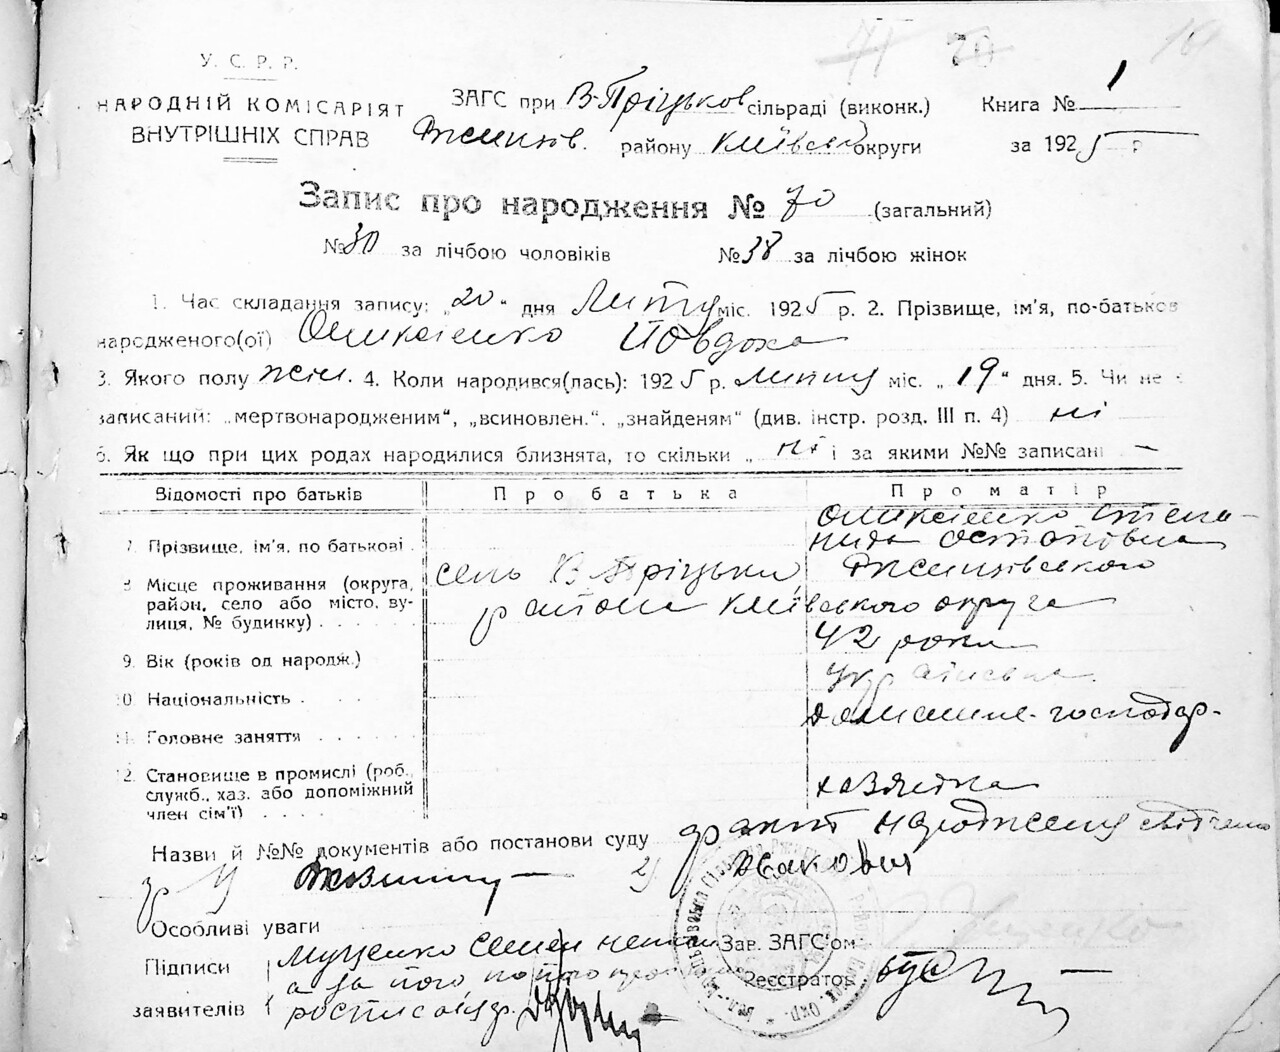 71 70 161
У. С. Р. Р.
НАРОДНІЙ КОМІСАРІЯТ
ВНУТРІШНІХ СПРАВ
ЗАГС при В-Пріцьков сільраді (виконк.)
району Київськ округи
Книга № 1
за 1925 р
Запис про народження № 70 (загальний)
№ 30 за лічбою чоловіків № 38 за лічбою жінок
1. Час складання запису: „20" дня Люту міс. 1925 р. 2. Прізвище, ім'я, по-батьков
народженого(ої) Оликсіенко Йовдоха
3. Якого полу жін. 4. Коли народився(лась): 1925 р. лютту міс. „19" дня. 5. Чи не є
записаний: „мертвонародженим", „всиновлен.", „знайденям" (див. інстр. розд. III п. 4) ні
6. Як що при цих родах народилися близнята, то скільки „ ні і за якими №№ записані —
Відомості про батьків Про батька Про матір
7. Прізвище, ім'я, по батькові . Оликсіенко Степа-
нида Остаповна
8 Місце проживання (округа, село В Пріцьки,
район, село або місто, ву- района Київського округа
лиця, № будинку) . . . . .
9. Вік (років од народж.) 42 роки
10. Національність . . . . Українка
11. Головне заняття . . . . . . домашнє-господар-
12. Становище в промислі (роб.,
служб., хаз. або допоміжний хазяйка
член сім'ї) . . . .
Назви й №№ документів або постанови суду факт народження свідчено
гр 2)
Особливі уваги
Підписи Муценко Семен
а за його
заявителів росписався гр.
Зав. ЗАГС'ом
Реєстратор